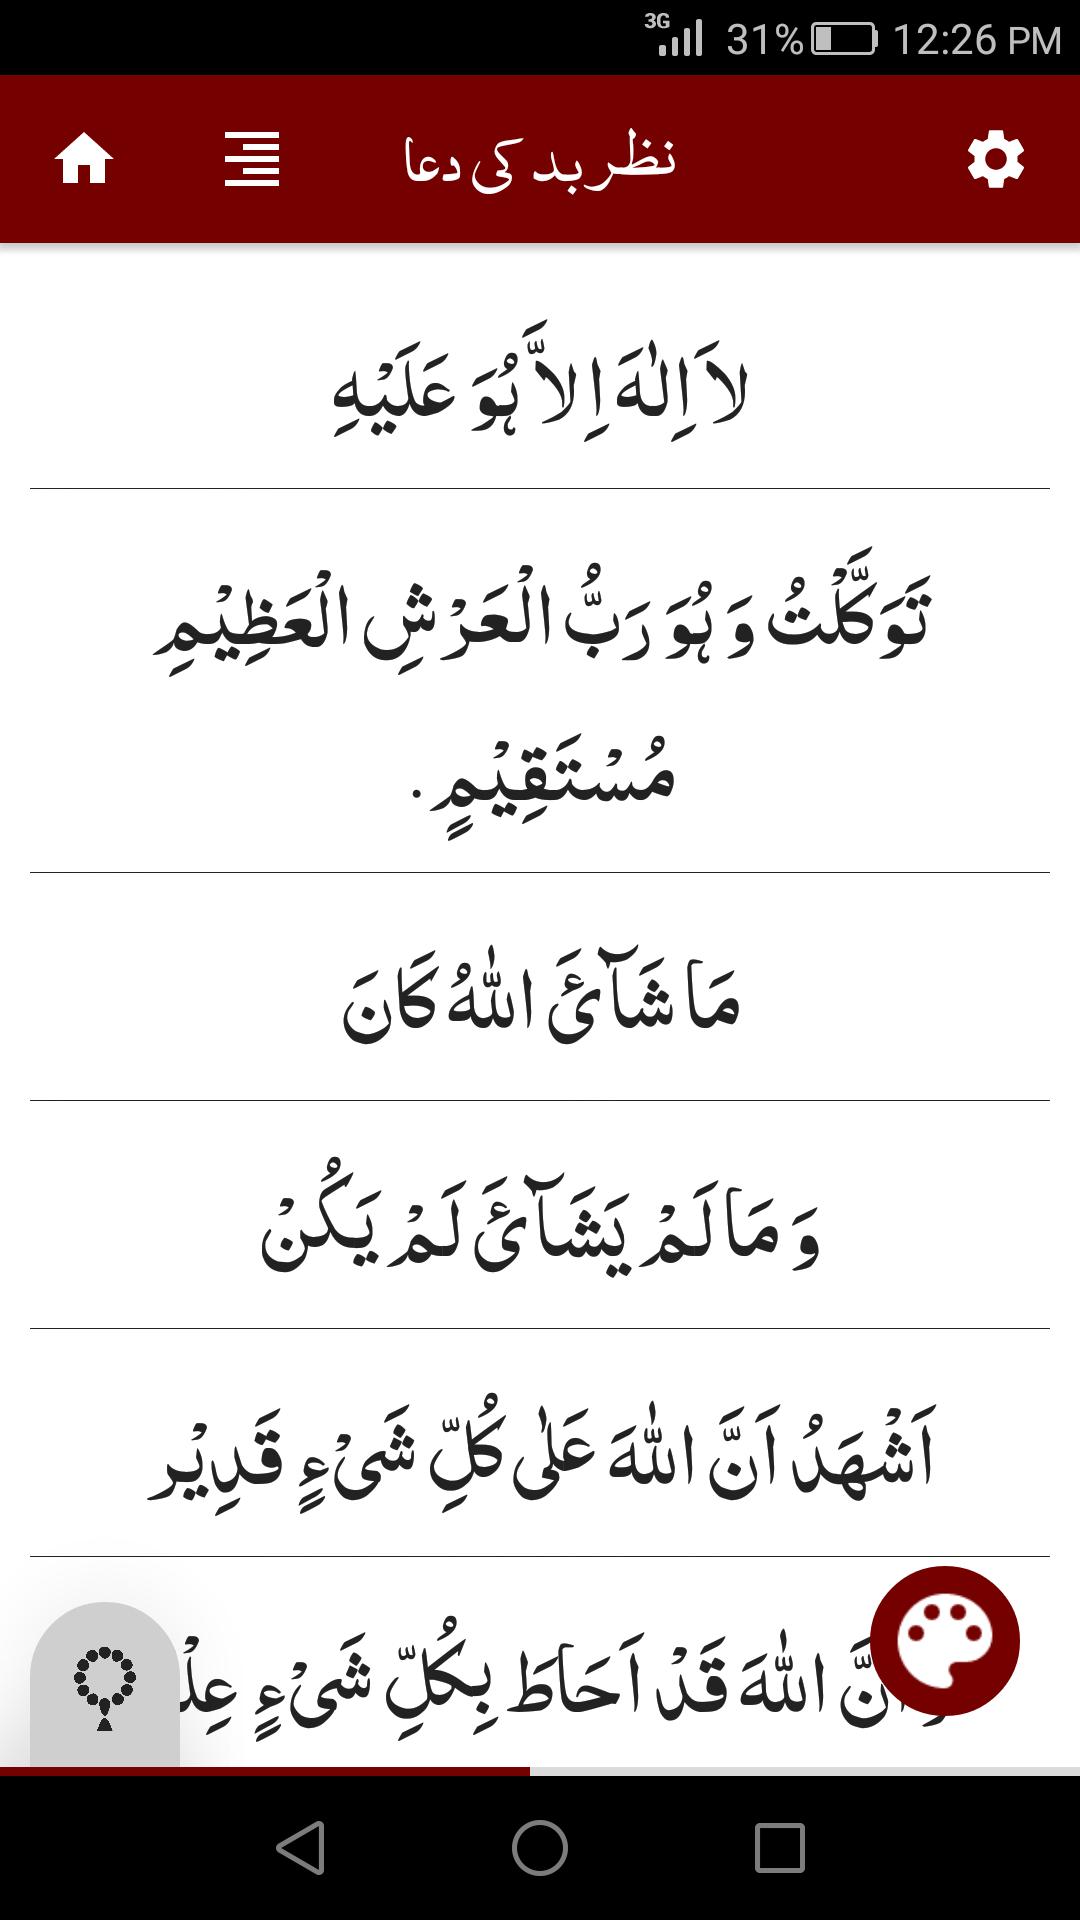 3G 31% 12:26 PM
نظر بد کی دعا
لاَ اِلٰہَ اِلاَّ ہُوَ عَلَیْہِ
تَوَکَّلْتُ وَ ہُوَ رَبُّ الْعَرْشِ الْعَظِیْمِ
مُسْتَقِیْمٍ .
مَا شَآئَ اللّٰہُ کَانَ
وَ مَا لَمْ یَشَآئَ لَمْ یَکُنْ
اَشْھَدُ اَنَّ اللّٰہَ عَلٰی کُلِّ شَیْءٍ قَدِیْر
اللّٰہَ قَدْ اَحَاطَ بِکُلِّ شَیْءٍ